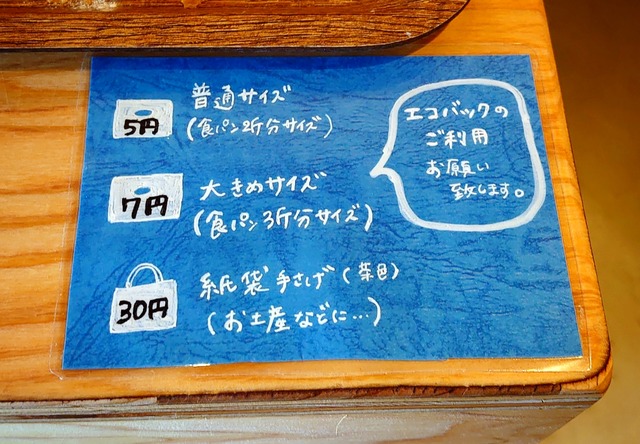 5円
普通サイズ
(食パン2斤分サイズ)
7円
大きめサイズ
(食パン3斤分サイズ)
30円
紙袋手さげ(茶色)
(お土産などに…)
エコバックの
ご利用
お願い
致します。